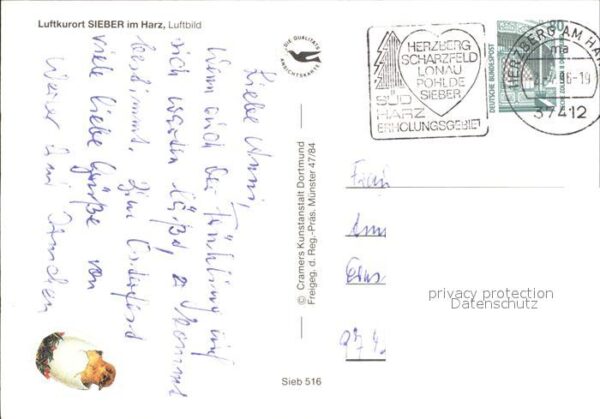 Luftkurort SIEBER im Harz, Luftbild
DIE QUALITÄTS
ANSICHTSKARTE
HERZBERG
SCHARZFELD
LONAU
PÖHLDE
SIEBER
SÜD
HARZ
ERHOLUNGSGEBIET
80
DEUTSCHE BUNDESPOST
HERZBERG AM HARZ
ma
-19
37412
Liebe Anni,
Wenn auch der Frühling auf
sich warten läßt, er kommt
bestimmt. Zum Osterfest
viele liebe Grüße von
© Cramers Kunstanstalt Dortmund
Freigeg. d. Reg.-Präs. Münster 47/84
Sieb 516
Frau
privacy protection
Datenschutz